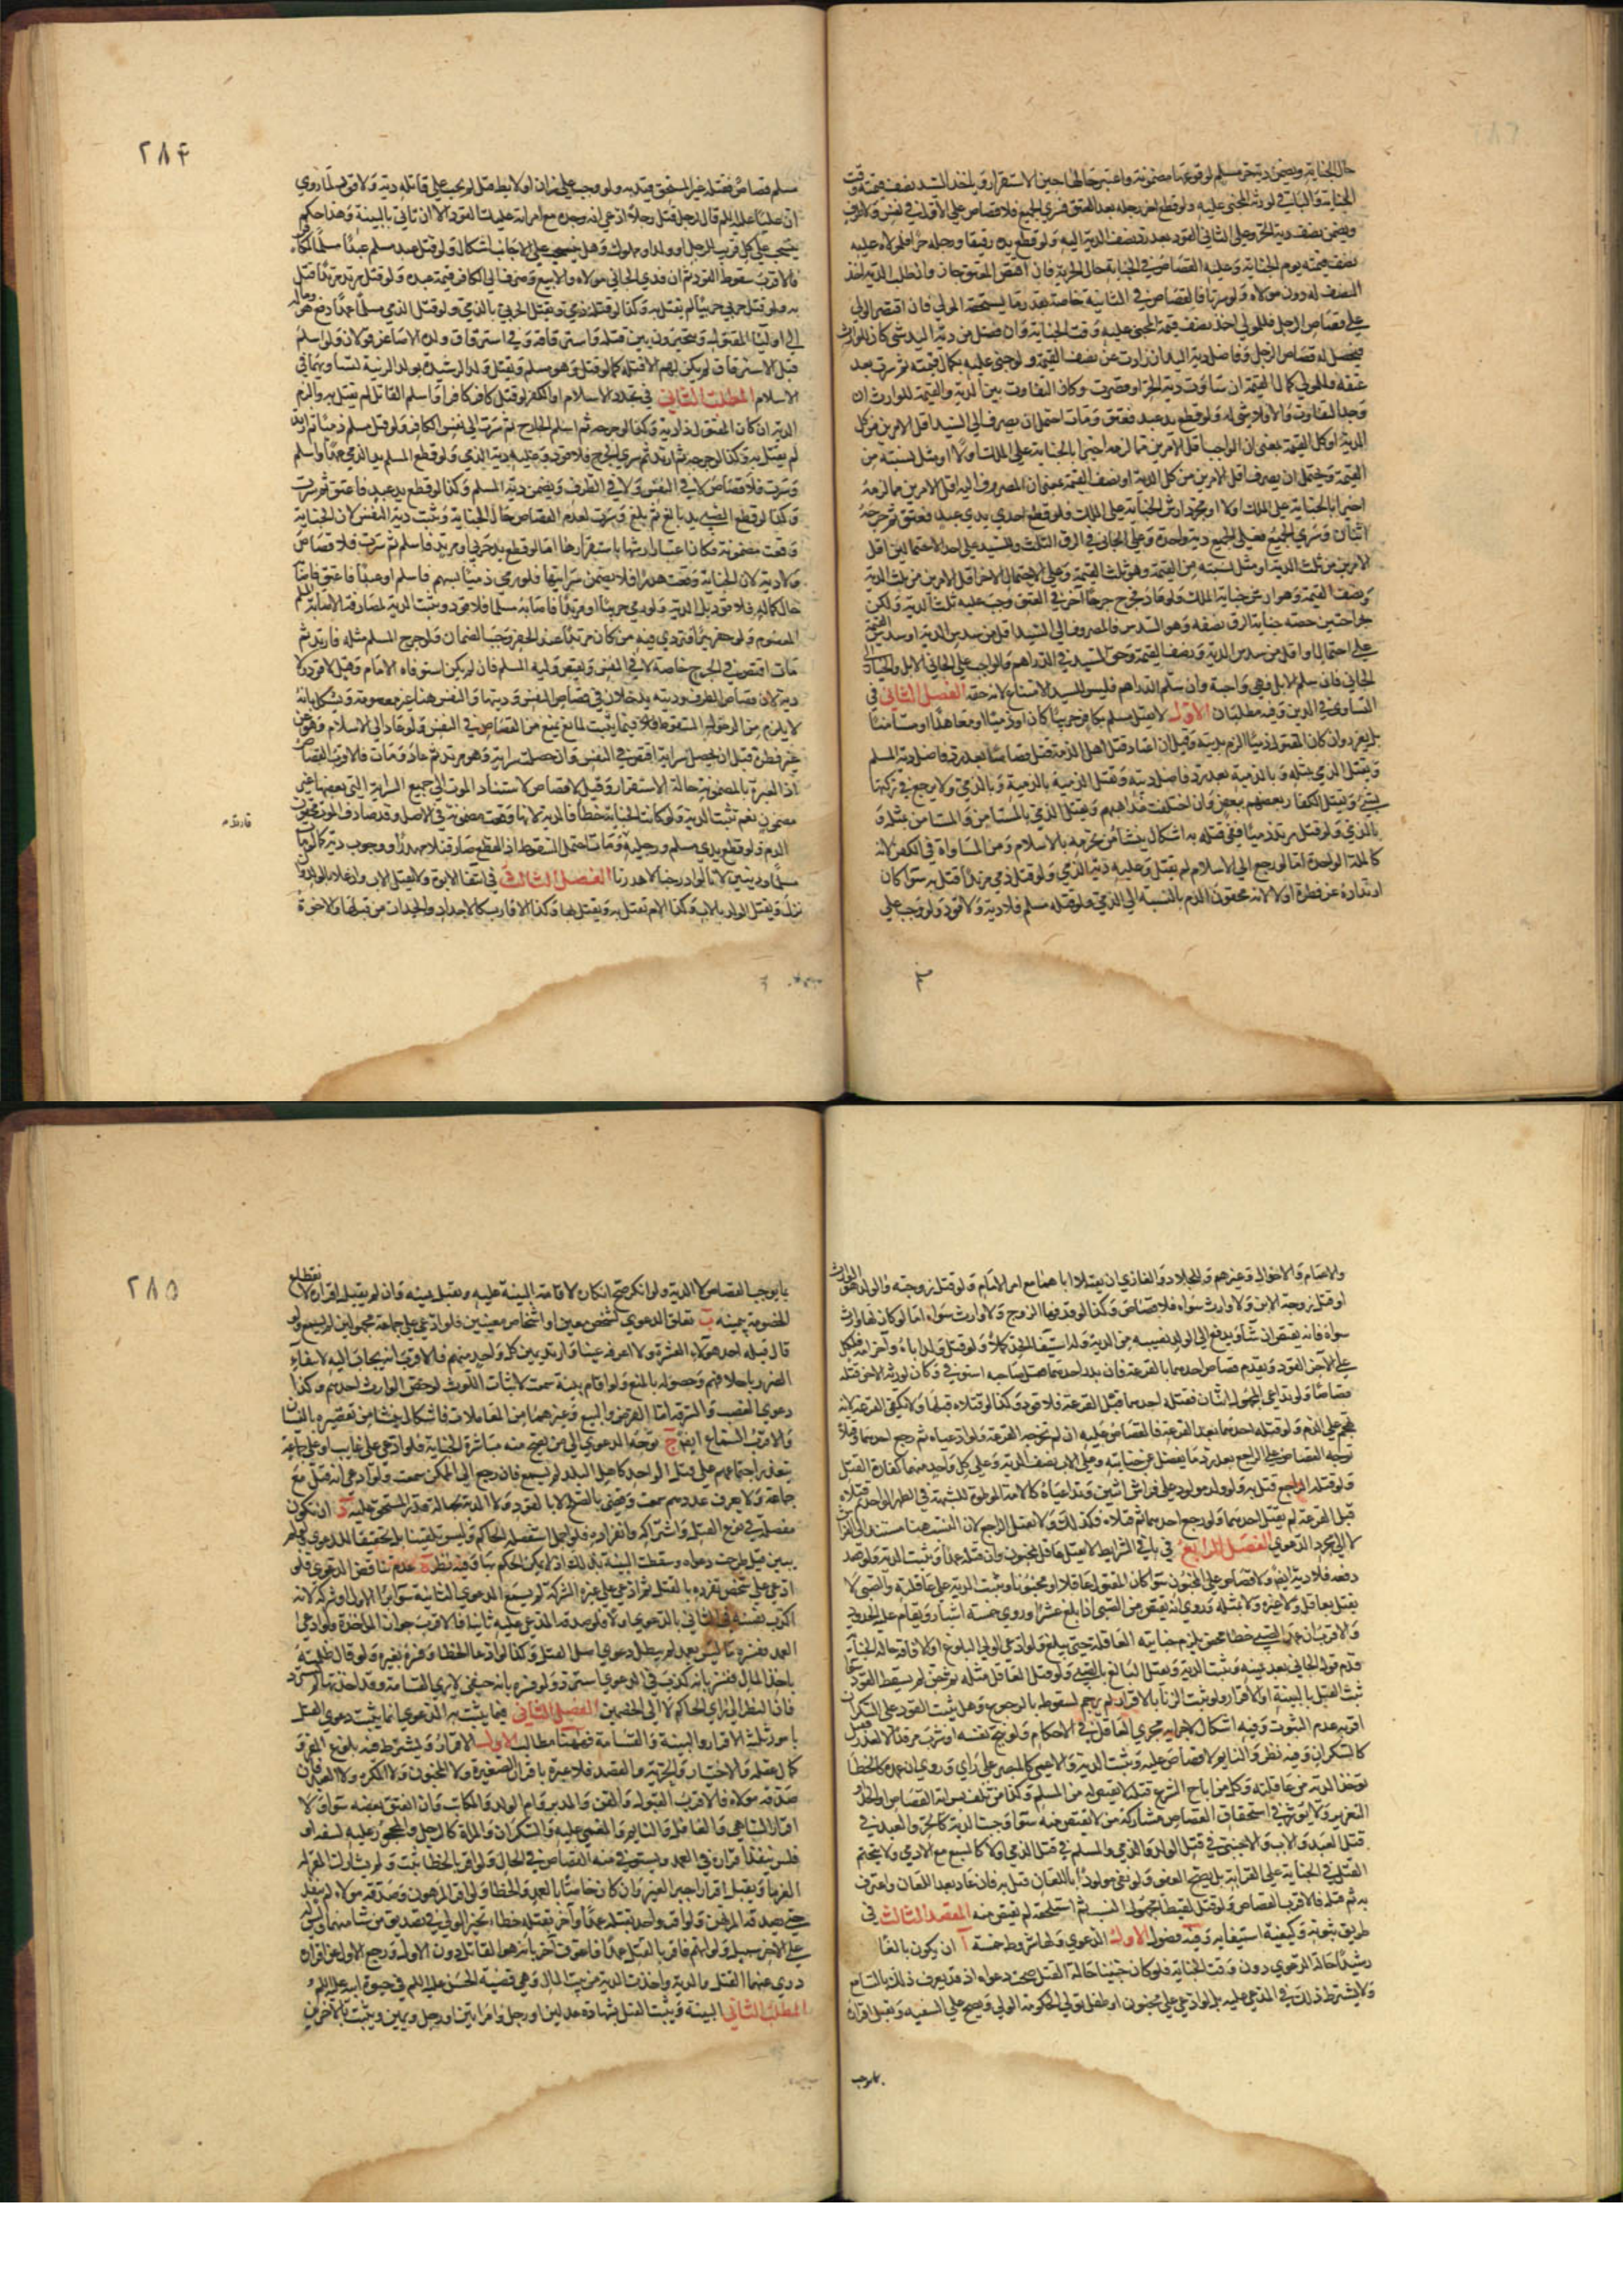 حال الجناية ويضمن دية حر مسلم لوقوعها مضمونة واعتبر حالها حين الاستقرار وياخذ السيد نصف قيمته وقت
الجناية والباقي لورثة المجني عليه ولو قطع اخر رجله بعد العتق فسرى الجميع فلا قصاص على الاول في نفس ولا طرف
ويضمن نصف دية الحر وعلى الثاني القود بعد رد نصف الدية اليه ولو قطع يده رقيقا ورجله حرا فلمولاه عليه
نصف قيمته يوم الجناية وعليه القصاص في الجناية حال الحرية فان اقتص المعتق جاز وان طلب الدية اخذ
النصف له دون مولاه ولو سرتا فالقصاص في الثانية خاصة بعد رد ما يستحقه المولى فان اقتصر الولي
على قصاص الرجل فللمولى اخذ نصف قيمة المجني عليه وقت الجناية وان فضل من دية اليد شي كان للوارث
فيحصل له قصاص الرجل وفاضل دية اليد ان زادت عن نصف القيمة ولو جنى عليه بكمال قيمته ثم سرت بعد
عتقه فللمولى كمال القيمة ان ساوت دية الحر او قصرت وكان التفاوت بين الدية والقيمة للوارث ان
وجد التفاوت والا فلا شي له ولو قطع يد عبد فعتق ومات احتمل ان يصرف الى السيد اقل الامرين من كل
الدية او كل القيمة بمعنى ان الواجب اقل الامرين مما لزمه اخيرا بالجناية على الملك اولا او مثل نسبته من
القيمة ويحتمل ان يصرف اقل الامرين من كل الدية او نصف القيمة بمعنى ان المصروف اليه اقل الامرين مما لزمه
اخيرا بالجناية على الملك اولا او مجرد ارش الجناية على الملك فلو قطع احدى يدي عبد فعتق ثم جرحه
اثنان وسرى الجميع فعلى الجميع دية واحدة وعلى الجاني في الرق الثلث وللسيد على احد الاحتمالين اقل
الامرين من ثلث الدية او مثل نسبته من القيمة وهو ثلث القيمة وعلى الاحتمال الاخر اقل الامرين من ثلث الدية
ونصف القيمة وهو ارش جناية الملك ولو عاد فجرح جرحا آخر في العتق وجب عليه ثلث الدية ولكن
بجراحتين حصة جناية الرق نصفه وهو السدس فالمصروف الى السيد اقل من سدس الدية او سدس القيمة
على احتمال او اقل من سدس الدية ونصف القيمة وحق السيد في الدراهم والواجب على الجاني الابل والخيار الى
الجاني فان سلم الابل فهي واجبة وان سلم الدراهم فليس للسيد الامتناع لانه حقه الفصل الثاني في
التساوي في الدين وفيه مطلبان الاول لا يقتل مسلم بكافر حربيا كان او ذميا او معاهدا او مستامنا
بل يعزر وان كان المقتول ذميا الزم بديته وقيل ان اعتاد قتل اهل الذمة قتل قصاصا بعد رد فاضل دية المسلم
ويقتل الذمي بمثله وبالذمية بعد رد فاضل ديته وتقتل الذمية بالذمية وبالذمي ولا يرجع في تركتها
بشيء ويقتل الكفار بعضهم ببعض وان اختلفت مذاهبهم ويقتل الذمي بالمستامن والمستامن بمثله و
بالذمي ولو قتل مرتد ذميا ففي قتله به اشكال ينشا من تحرمه بالاسلام ومن المساواة في الكفر لانه
كالملة الواحدة اما لو رجع الى الاسلام لم يقتل وعليه دية الذمي ولو قتل ذمي مرتدا قتل به سواء كان
ارتداده عن فطرة او لا لانه محقون الدم بالنسبة الى الذمي ولو قتله مسلم فلا دية ولا قود ولو وجب على
مسلم
٢٨۴
مسلم قصاص فقتله غير المستحق قيد به ولو وجب على زان او لايط قتل لم يجب على قاتله دية ولا قود لما روي
ان عليا عليه السلم قال لرجل قتل رجلا وادعى انه وجده مع امراته عليك القود الا ان تاتي بالبينة وهذا حكم
يجب على كل قريب للرجل او ولد او مملوك وهل يجب على الاجانب اشكال ولو قتل عبد مسلم عبدا مسلما لكافر
فالاقرب سقوط القود ثم ان فدى الجاني مولاه والا بيع وصرف الى الكافر قيمة عبده ولو قتل مرتد مرتدا قتل
به ولو قتل حربي حربيا لم يقتل به وكذا لو قتله ذمي ويقتل الحربي بالذمي ولو قتل الذمي مسلما عمدا دفع هو وماله
الى اولياء المقتول ويتخيرون بين قتله واسترقاقه وفي استرقاق ولده الاصاغر قولان ولو اسلم
قبل الاسترقاق لم يكن لهم الا قتله كما لو قتل وهو مسلم ويقتل ولد الرشدة بولد الزنية لتساويهما في
الاسلام المطلب الثاني في تجدد الاسلام او الكفر لو قتل كافر كافرا واسلم القاتل لم يقتل به والزم
الدية ان كان المقتول ذا دية وكذا لو جرحه ثم اسلم الجارح ثم سرت الى نفس الكافر ولو قتل مسلم ذميا ثم ارتد
لم يقتل به وكذا لو جرحه ثم ارتد ثم سرى الجرح فلا قود وعليه دية الذمي ولو قطع المسلم يد الذمي عمدا واسلم
وسرت فلا قصاص لا في النفس ولا في الطرف ويضمن دية المسلم وكذا لو قطع يد عبد فاعتق ثم سرت
وكذا لو قطع الصبي يد بالغ ثم بلغ وسرت لعدم القصاص حال الجناية وتثبت دية النفس لان الجناية
وقعت مضمونة فكان اعتبار ارشها باستقرارها اما لو قطع يد حربي او مرتد فاسلم ثم سرت فلا قصاص
ولا دية لان الجناية وقعت هدرا فلا يضمن سرايتها فلو رمى ذميا بسهم فاسلم او عبدا فاعتق فاصابه
حال كماله فلا قود بل الدية ولو رمى حربيا او مرتدا فاصابه مسلما فلا قود وتثبت الدية لمصادفة الاصابة المسلم
المعصوم ولو حفر بئرا فتردى فيه من كان مرتدا عند الحفر وجب الضمان ولو جرح المسلم مثله فارتد ثم
مات اقتص في الجرح خاصة لا في النفس ويقتص وليه المسلم فان لم يكن استوفاه الامام وقيل لا قود ولا
دية لان قصاص الطرف وديته يدخلان في قصاص النفس وديتها والنفس هنا غير معصومة ويشكل بانه
لا يلزم من الدخول السقوط فلا فيما يثبت لمانع يمنع من القصاص في النفس ولو عاد الى الاسلام وهو عن
غير فطرة قبل ان يحصل سراية اقتص في النفس وان حصلت سراية وهو مرتد ثم عاد ومات فالاقرب القصاص
اذ العبرة بالمضمون حالة الاستقرار وقيل لا قصاص لاستناد الموت الى جميع السراية التي بعضها غير
مضمون نعم تثبت الدية ولو كانت الجناية خطأ فالدية لانها وقعت مضمونة في الاصل وقد صادف الموت محقون
الدم ولو قطع يدي مسلم ورجليه ومات احتمل السقوط اذ القطع صار قتلا مهدرا ووجوب دية كامل مات
مسلما وديتين لانا لو ادرجنا لاهدرنا الفصل الثالث في انتفاء الابوة ولا يقتل الاب وان علا بالولد وان
نزل ويقتل الولد بالاب وكذا الام تقتل به ويقتل بها وكذا الاقارب كالاجداد والجدات من قبلها والاخوة
والاعمام والاخوال وغيرهم وللجلاد والغازي ان يقتلا اباهما مع امر الامام ولو قتل زوجته والولد هو الوارث
او قتل زوجة الابن ولا وارث سواه فلا قصاص وكذا لو قذفها الزوج ولا وارث سواه اما لو كان لها وارث
سواه فانه يقتص ان شاء ويدفع الى الولد نصيبه من الدية وله استيفاء الحد كملا ولو قتل ولد اباه وآخر امه فلكل
على الآخر القود ويقدم قصاص احدهما بالقرعة فان بدر احدهما فقتل صاحبه استوفى وكان لورثة الاخر قتله
قصاصا ولو تداعى المجهول اثنان فقتله احدهما قبل القرعة فلا قود وكذا لو قتلاه قبلها ولا تكفي القرعة لانه
تهجم على الدم ولو قتله احدهما بعد القرعة فالقصاص عليه ان لم تخرجه القرعة ولو ادعياه ثم رجع احدهما وقتلاه
توجه القصاص على الراجع بعد رد ما يفضل عن جنايته وعلى الاب نصف الدية وعلى كل واحد منهما كفارة القتل
ولو قتله الراجع قتل به ولو ولد مولود على فراش اثنين وتداعياه كالامة الموطوة للشبهة في الطهر الواحد ثم قتلاه
قبل القرعة لم يقتل احدهما ولو رجع احدهما ثم قتلاه فكذلك ولا يقتل الراجع لان النسب هنا مستند الى الفراش
لا الى مجرد الدعوى الفصل الرابع في باقي الشرايط لا يقتل عاقل بمجنون وان قتله عمدا وتثبت الدية ولو قصد
دفعه فلا دية ايضا ولا قصاص على المجنون سواء كان المقتول عاقلا او مجنونا وتثبت الدية على عاقلته والصبي لا
يقتل بعاقل ولا غيره ولا بمثله وروي انه يقتص من الصبي اذا بلغ عشرا وروي خمسة اشبار ويقام عليه الحدود
والاقرب ان عمد الصبي خطأ محض يلزم جنايته العاقلة حتى يبلغ ولو ادعى الولي البلوغ او الافاقة حالة الجناية
قدم قول الجاني بعد يمينه وتثبت الدية ويقتل البالغ بالصبي ولو قتل العاقل مثله ثم جن لم يسقط القود سواء
ثبت القتل بالبينة او الاقرار ولو ثبت الزنا بالاقرار لم يرجم لسقوطه بالرجوع وهل يثبت القود على السكران
اقربه عدم الثبوت وفيه اشكال لاجرائه مجرى العاقل في الاحكام ولو بنج نفسه او شرب مرقدا لا لعذر قيل
كالسكران وفيه نظر والنايم لا قصاص عليه وتثبت الدية والاعمى كالمبصر على راي وروي ان عمده كالخطأ
يوخذ الدية من عاقلته وكل من اباح الشرع قتله لا يقتص له من المسلم وكذا من تلف بسراية القصاص او الحد او
التعزير ولا يؤثر في استحقاق القصاص مشاركة من لا يقتص منه سواء وجبت الدية كالحر والعبد في
قتل العبد والاب والاجنبي في قتل الولد والذمي والمسلم في قتل الذمي او لا كالسبع مع الادمي ولا يتحتم
القتل في الجناية على القرابة بل يصح العفو ولو نفى مولودا باللعان قتل به فان عاد بعد اللعان واعترف
به ثم قتله فالاقرب القصاص ولو قتل لقيطا مجهول النسب ثم استلحقه لم يقتص منه المقصد الثالث في
طريق ثبوته وكيفية استيفائه وفيه فصول الاول الدعوى ولها شروط خمسة آ ان يكون بالغا
رشيدا حالة الدعوى دون وقت الجناية فلو كان جنينا حالة القتل صحت دعواه اذ قد يعرف ذلك بالتسامع
ولا يشترط ذلك في المدعى عليه بل لو ادعى على مجنون او طفل تولى الحكومة الولي ويصح على السفيه ويقبل اقراره
بما يوجب
٢٨٥
بما يوجب القصاص لا الدية ولو انكر صح انكاره لاقامة البينة عليه ويقبل يمينه وان لم يقبل اقراره لانقطاع
الخصومة بيمينه ب تعلق الدعوى بشخص معين او اشخاص معينين فلو ادعى على جماعة مجهولين لم يسمع ولو
قال قتله احد هولاء العشرة ولا اعرفه عينا واريد يمين كل واحد منهم فالاقرب انه يجاب اليه لانتفاء
الضرر باحلافهم وحصوله بالمنع ولو اقام بينة سمعت لاثبات اللوث لو خص الوارث احدهم وكذا
دعوى الغصب والسرقة اما القرض والبيع وغيرهما من المعاملات فاشكال ينشا من تقصيره بالنسيان
والاقرب السماع ايضا ج توجه الدعوى الى من يصح منه مباشرة الجناية فلو ادعى على غايب او على جماعة
يتعذر اجتماعهم على قتل الواحد كاهل البلد لم يسمع فان رجع الى الممكن سمعت ولو ادعى انه قتل مع
جماعة ولا يعرف عددهم سمعت وقضي بالصلح لا بالقود ولا الدية لجهالة قدر المستحق عليه د ان تكون
مفصلة في نوع القتل واشتراكه وانفراده فلو اجمل استفصله الحاكم وليس تلقينا بل تحقيقا للدعوى ولو لم
يبين قيل طرحت دعواه وسقطت البينة بذلك اذ لا يمكن الحكم بها وفيه نظر ه عدم تناقض الدعوى فلو
ادعى على شخص تفرده بالقتل ثم ادعى على غيره الشركة لم يسمع الدعوى الثانية سواء برا الاول او شركه لانه
اكذب نفسه في الثاني بالدعوى اولا فلو صدقه المدعى عليه ثانيا فالاقرب جواز المؤاخذة ولو ادعى
العمد ففسره بما ليس بعمد لم يبطل دعوى اصل القتل وكذا لو ادعى الخطا وفسره بغيره ولو قال ظلمته
باخذ المال ففسر بانه كذب في الدعوى استرد ولو فسره بانه حنفي لا يرى القسامة وقد اخذ بها لم يسترد
فان النظر الى راي الحاكم لا الى الخصمين الفصل الثاني فيما يثبت به الدعوى انما يثبت دعوى القتل
بامور ثلثة الاقرار والبينة والقسامة فهنا مطالب الاول الاقرار ويشترط فيه بلوغ المقر و
كمال عقله والاختيار والحرية والقصد فلا عبرة باقرار الصغير ولا المجنون ولا المكره ولا العبد فان
صدقه مولاه فالاقرب القبول والقن والمدبر وام الولد والمكاتب وان انعتق بعضه سواء ولا
اقرار الساهي والغافل والنايم والمغمى عليه والسكران والمراة كالرجل والمحجور عليه لسفه او
فلس ينفذ اقراره في العمد ويستوفى منه القصاص في الحال ولو اقر بالخطا ثبت ولم يشارك المقر له
الغرما ويقبل اقرار اجير الغير وان كان خاصا بالعمد والخطا ولو اقر المرهون وصدقه مولاه لم ينفذ
حتى يصدقه المرتهن ولو اقر واحد بقتله عمدا وآخر بقتله خطاء تخير الولي في تصديق من شاء منهما وليس له
على الاخر سبيل ولو اتهم فاقر بالقتل عمدا فاعترف آخر بانه هو القاتل دون الاول ورجع الاول عن اقراره
دري عنهما القتل والدية واخذت الدية من بيت المال وهي قضية الحسن عليه السلم في حيوة ابيه عليه السلم
المطلب الثاني البينة ويثبت القتل بشهادة عدلين او رجل وامراتين او رجل ويمين ويثبت بالآخرين